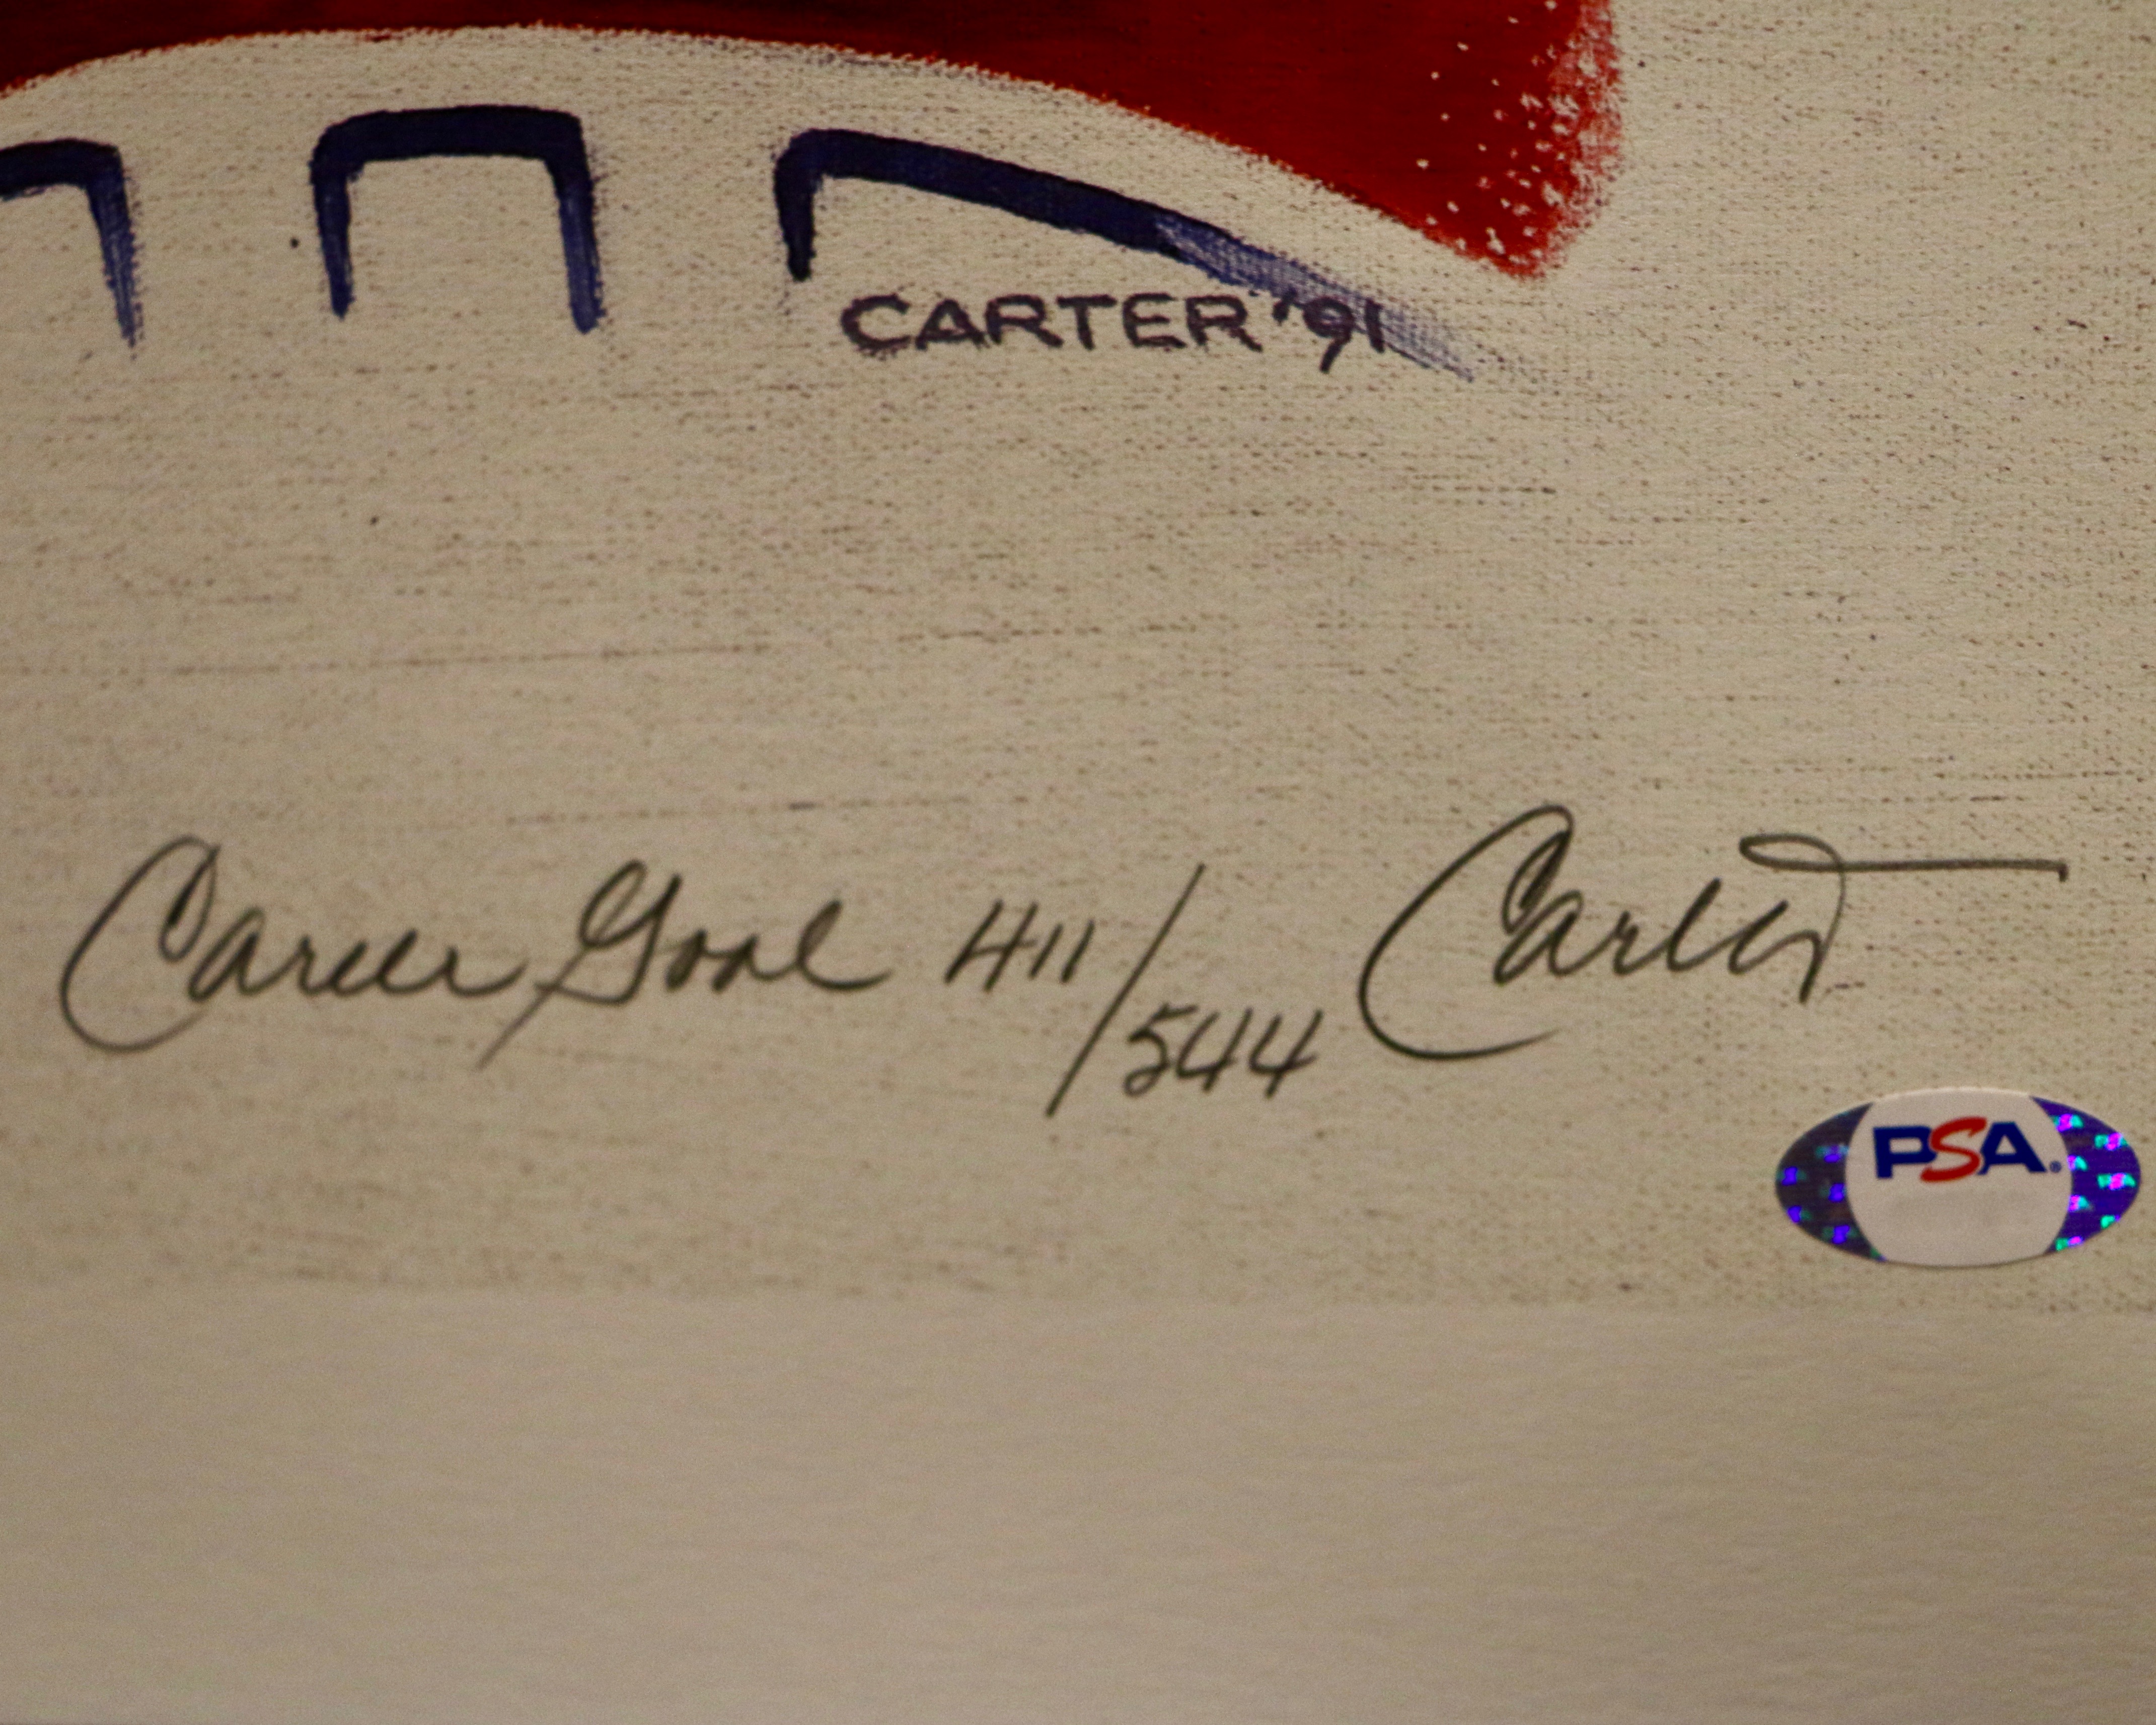 CARTER '91
Career Goal 411/544 Carter
PSA®